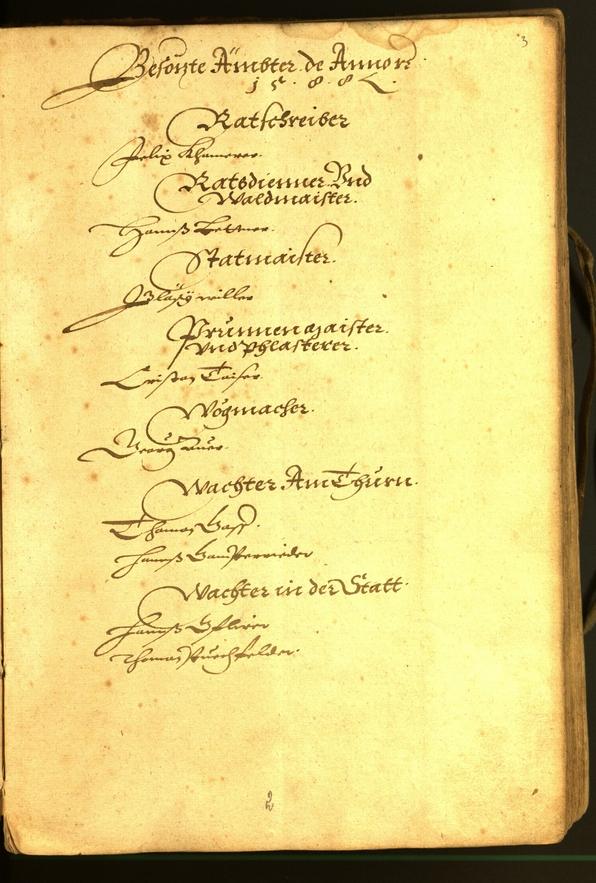 3
Besönte Ämbter de Annorr
1 5 8 8 .
Ratschreiber
Felix Khamerer.
Ratsdienner Vnd
Waldmaister.
Hannß
Statmaister.
Bläsÿ willer
Prunnenmaister
vnd Phlasterer.
Cristan Caiser.
Wögmacher.
Georg Auer.
Wachter Am Thurn.
Thoman Gass.
Hannß
Wachter in der Statt.
Hannß
Thoman Puechfelder.
2